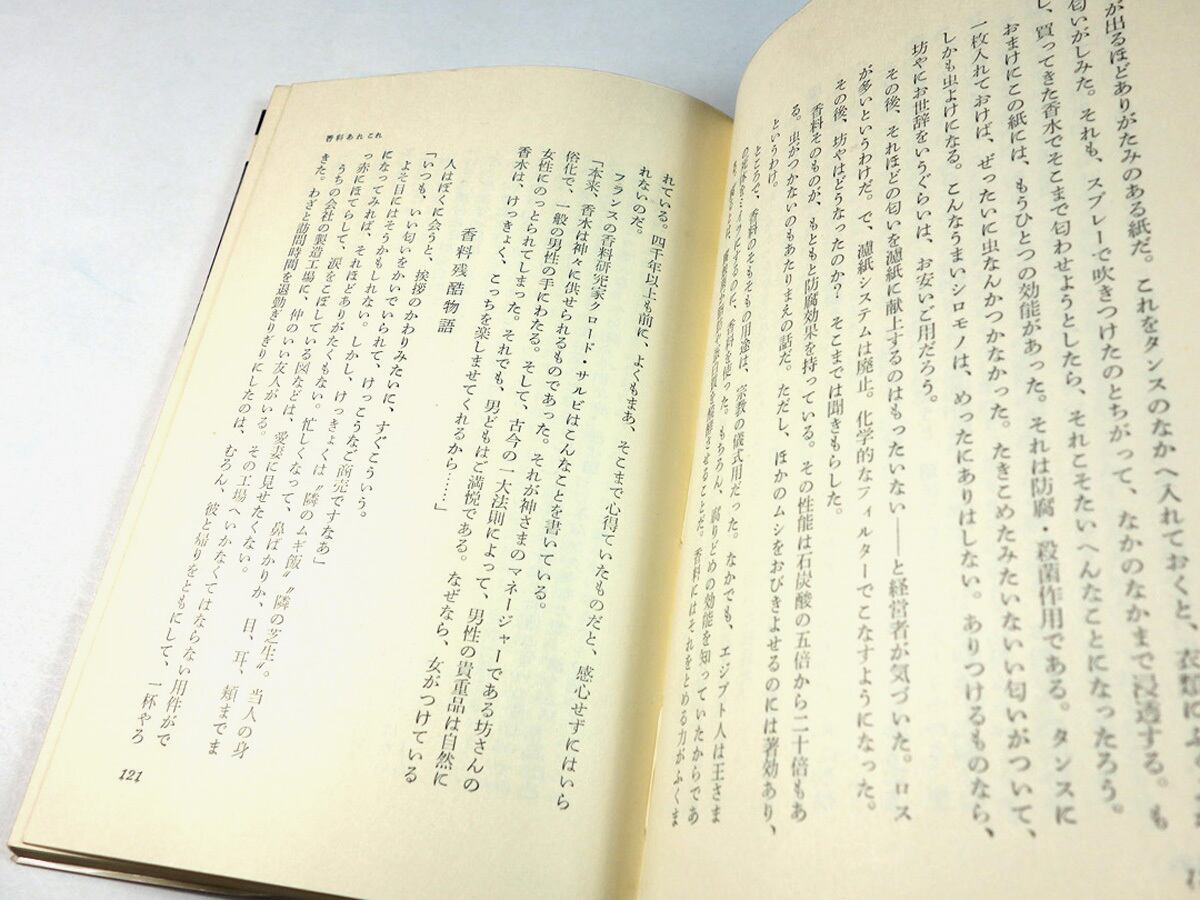 が出るほどありがたみのある紙だ。これをタンスのなかへ入れておくと、衣類に
匂いがしみた。それも、スプレーで吹きつけたのとちがって、なかのなかまで浸透する。も
し、買ってきた香水でそこまで匂わせようとしたら、それこそたいへんなことになったろう。
おまけにこの紙には、もうひとつの効能があった。それは防腐・殺菌作用である。タンスに
一枚入れておけば、ぜったいに虫なんかつかなかった。たきこめたみたいないい匂いがついて、
しかも虫よけになる。こんなうまいシロモノは、めったにありはしない。ありつけるものなら、
坊やにお世辞をいうぐらいは、お安いご用だろう。
その後、それほどの匂いを濾紙に献上するのはもったいない――と経営者が気づいた。ロス
が多いというわけだ。で、濾紙システムは廃止。化学的なフィルターでこなすようになった。
その後、坊やはどうなったのか？　そこまでは聞きもらした。
香料そのものが、もともと防腐効果を持っている。その性能は石炭酸の五倍から二十倍もあ
る。虫がつかないのもあたりまえの話だ。ただし、ほかのムシをおびきよせるのには著効あり、
というわけ。
ところで、香料のそもそもの用途は、宗教の儀式用だった。なかでも、エジプト人は王さま
の死体をミイラにするのに、香料を使った。もちろん、腐りどめの効能を知っていたからであ
させることだ。香料にはそれをとめる力がふくま
れている。四千年以上も前に、よくもまあ、そこまで心得ていたものだと、感心せずにはいら
れないのだ。
フランスの香料研究家クロード・サルビはこんなことを書いている。
「本来、香水は神々に供せられるものであった。それが神さまのマネージャーである坊さんの
俗化で、一般の男性の手にわたる。そして、古今の一大法則によって、男性の貴重品は自然に
女性にのっとられてしまった。それでも、男どもはご満悦である。なぜなら、女がつけている
香水は、けっきょく、こっちを楽しませてくれるから……」
香料残酷物語
人はぼくに会うと、挨拶のかわりみたいに、すぐこういう。
「いつも、いい匂いをかいでいられて、けっこうなご商売ですなあ」
よそ目にはそうかもしれない。しかし、けっきょくは〝隣のムギ飯〟〝隣の芝生〟。当人の身
になってみれば、それほどありがたくもない。忙しくなって、鼻ばかりか、目、耳、頬までま
っ赤にほてらして、涙をこぼしている図などは、愛妻に見せたくない。
うちの会社の製造工場に、仲のいい友人がいる。その工場へいかなくてはならない用件がで
きた。わざと訪問時間を退勤ぎりぎりにしたのは、むろん、彼と帰りをともにして、一杯やろ
香料あれこれ
121